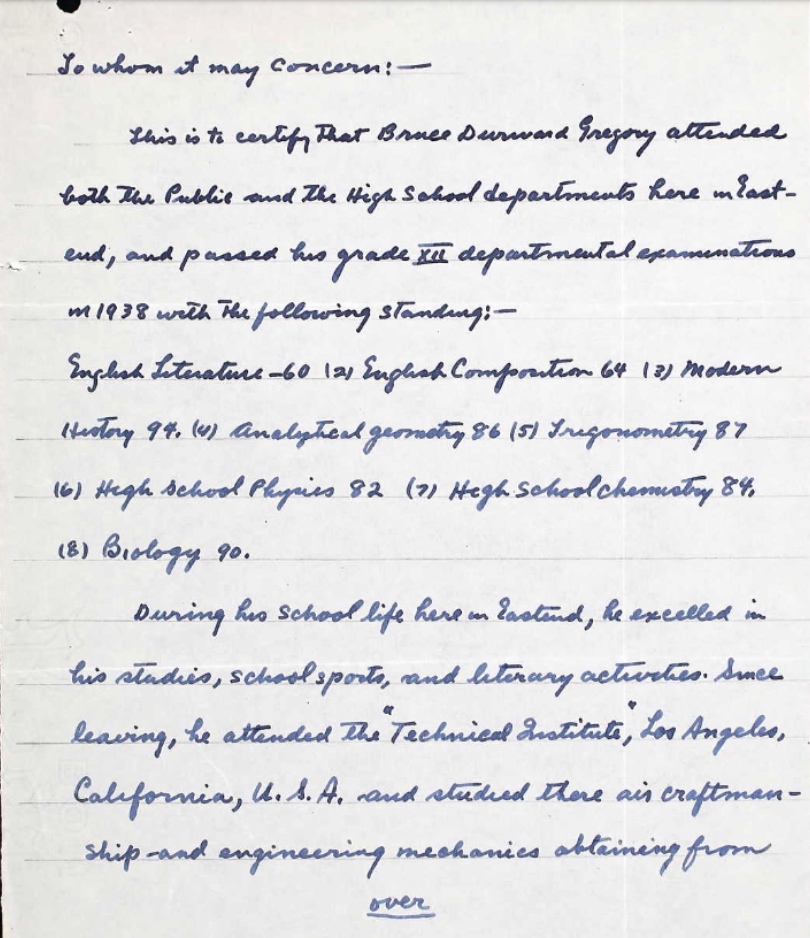 To whom it may concern:—
This is to certify that Bruce Durward Gregory attended
both the Public and the High School departments here in East-
end, and passed his grade XII departmental examinations
in 1938 with the following standing:—
English Literature—60 (2) English Composition 64 (3) Modern
History 94. (4) Analytical geometry 86 (5) Trigonometry 87
(6) High School Physics 82 (7) High School chemistry 84.
(8) Biology 90.
During his school life here in Eastend, he excelled in
his studies, school sports, and literary activities. Since
leaving, he attended the "Technical Institute", Los Angeles,
California, U.S.A. and studied there air craftman-
ship and engineering mechanics obtaining from
over